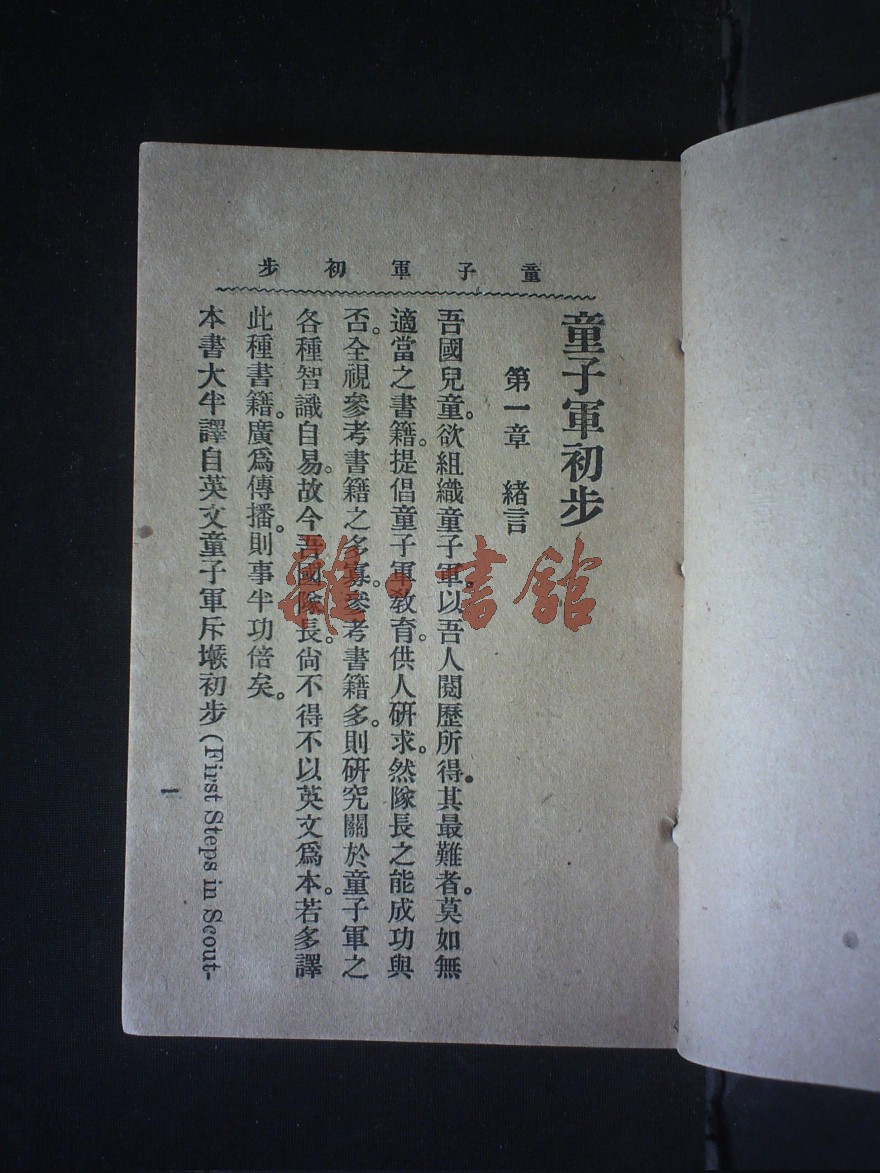 童子軍初步
童子軍初步
第一章 緒言
吾國兒童。欲組織童子軍。以吾人閱歷所得。其最難者。莫如無
適當之書籍。提倡童子軍敎育。供人研求。然隊長之能成功與
否。全視參考書籍之多寡。參考書籍多。則硏究關於童子軍之
各種智識自易。故今吾國隊長。尙不得不以英文爲本。若多譯
此種書籍。廣爲傳播。則事半功倍矣。
本書大半譯自英文童子軍斥堠初步(First Steps in Scout-
一
雜·書館